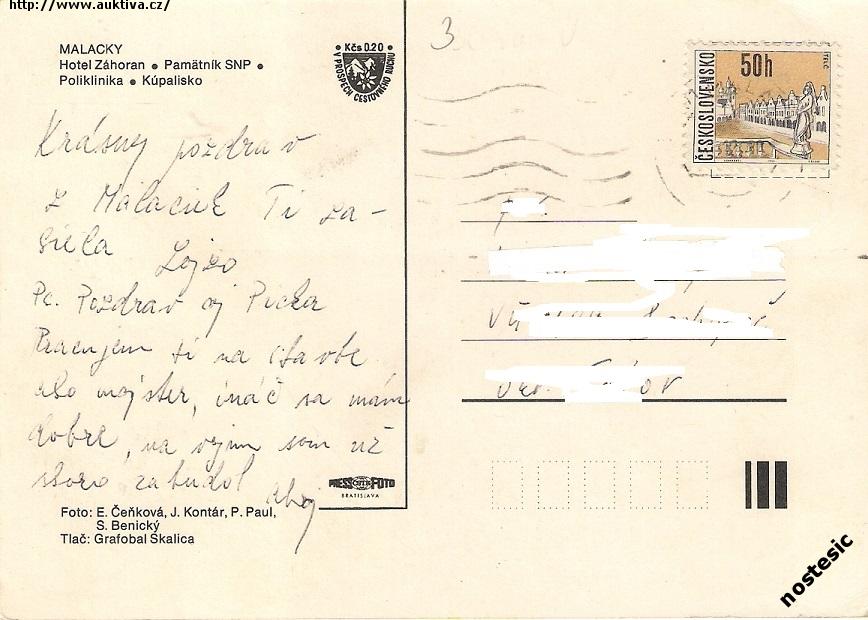 http://www.auktiva.cz/
MALACKY
Hotel Záhoran • Pamätník SNP •
Poliklinika • Kúpalisko
• Kčs 0.20 •
V PROSPECH CESTOVNÉHO RUCHU
3
ČESKOSLOVENSKO
50h
TELČ
Krásny pozdrav
z Malaciek Ti za-
siela Lojzo
Ps. Pozdrav aj
Pracujem si na stavbe
ako majster, ináč sa mám
dobre, na vojnu som už
skoro zabudol ahoj
PRESSFOTO
BRATISLAVA
Foto: E. Čeňková, J. Kontár, P. Paul,
S. Benický
Tlač: Grafobal Skalica
nostesic